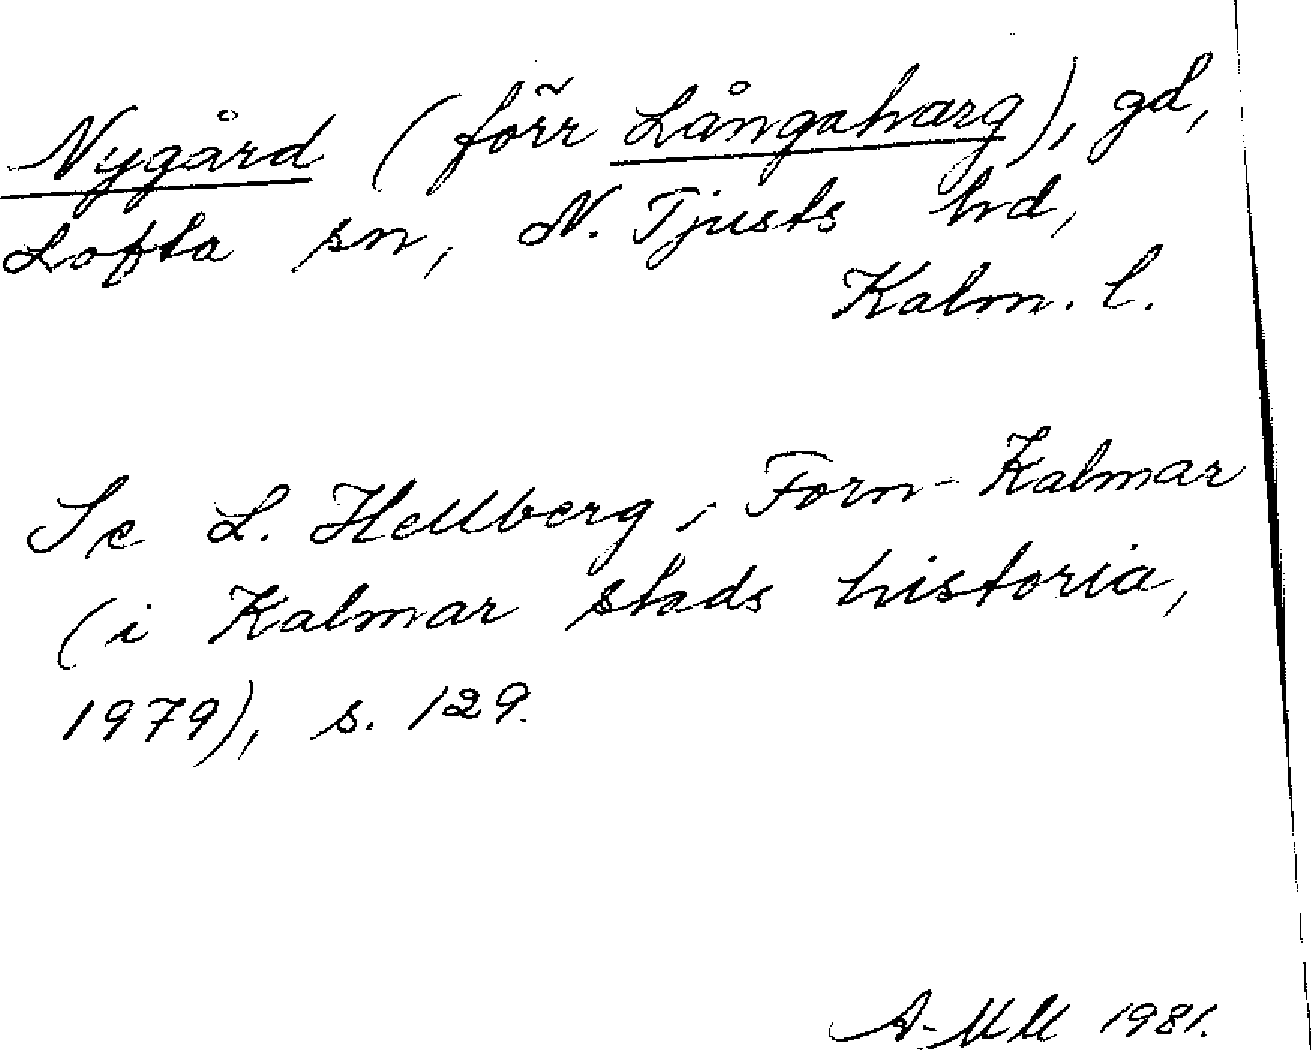 Nygård (förr Långaharg), gd,
Lofta sn, N. Tjusts hd,
Kalm. l.
Se L. Hellberg, Forn-Kalmar
(i Kalmar stads historia,
1979), s. 129.
A-MM 1981.